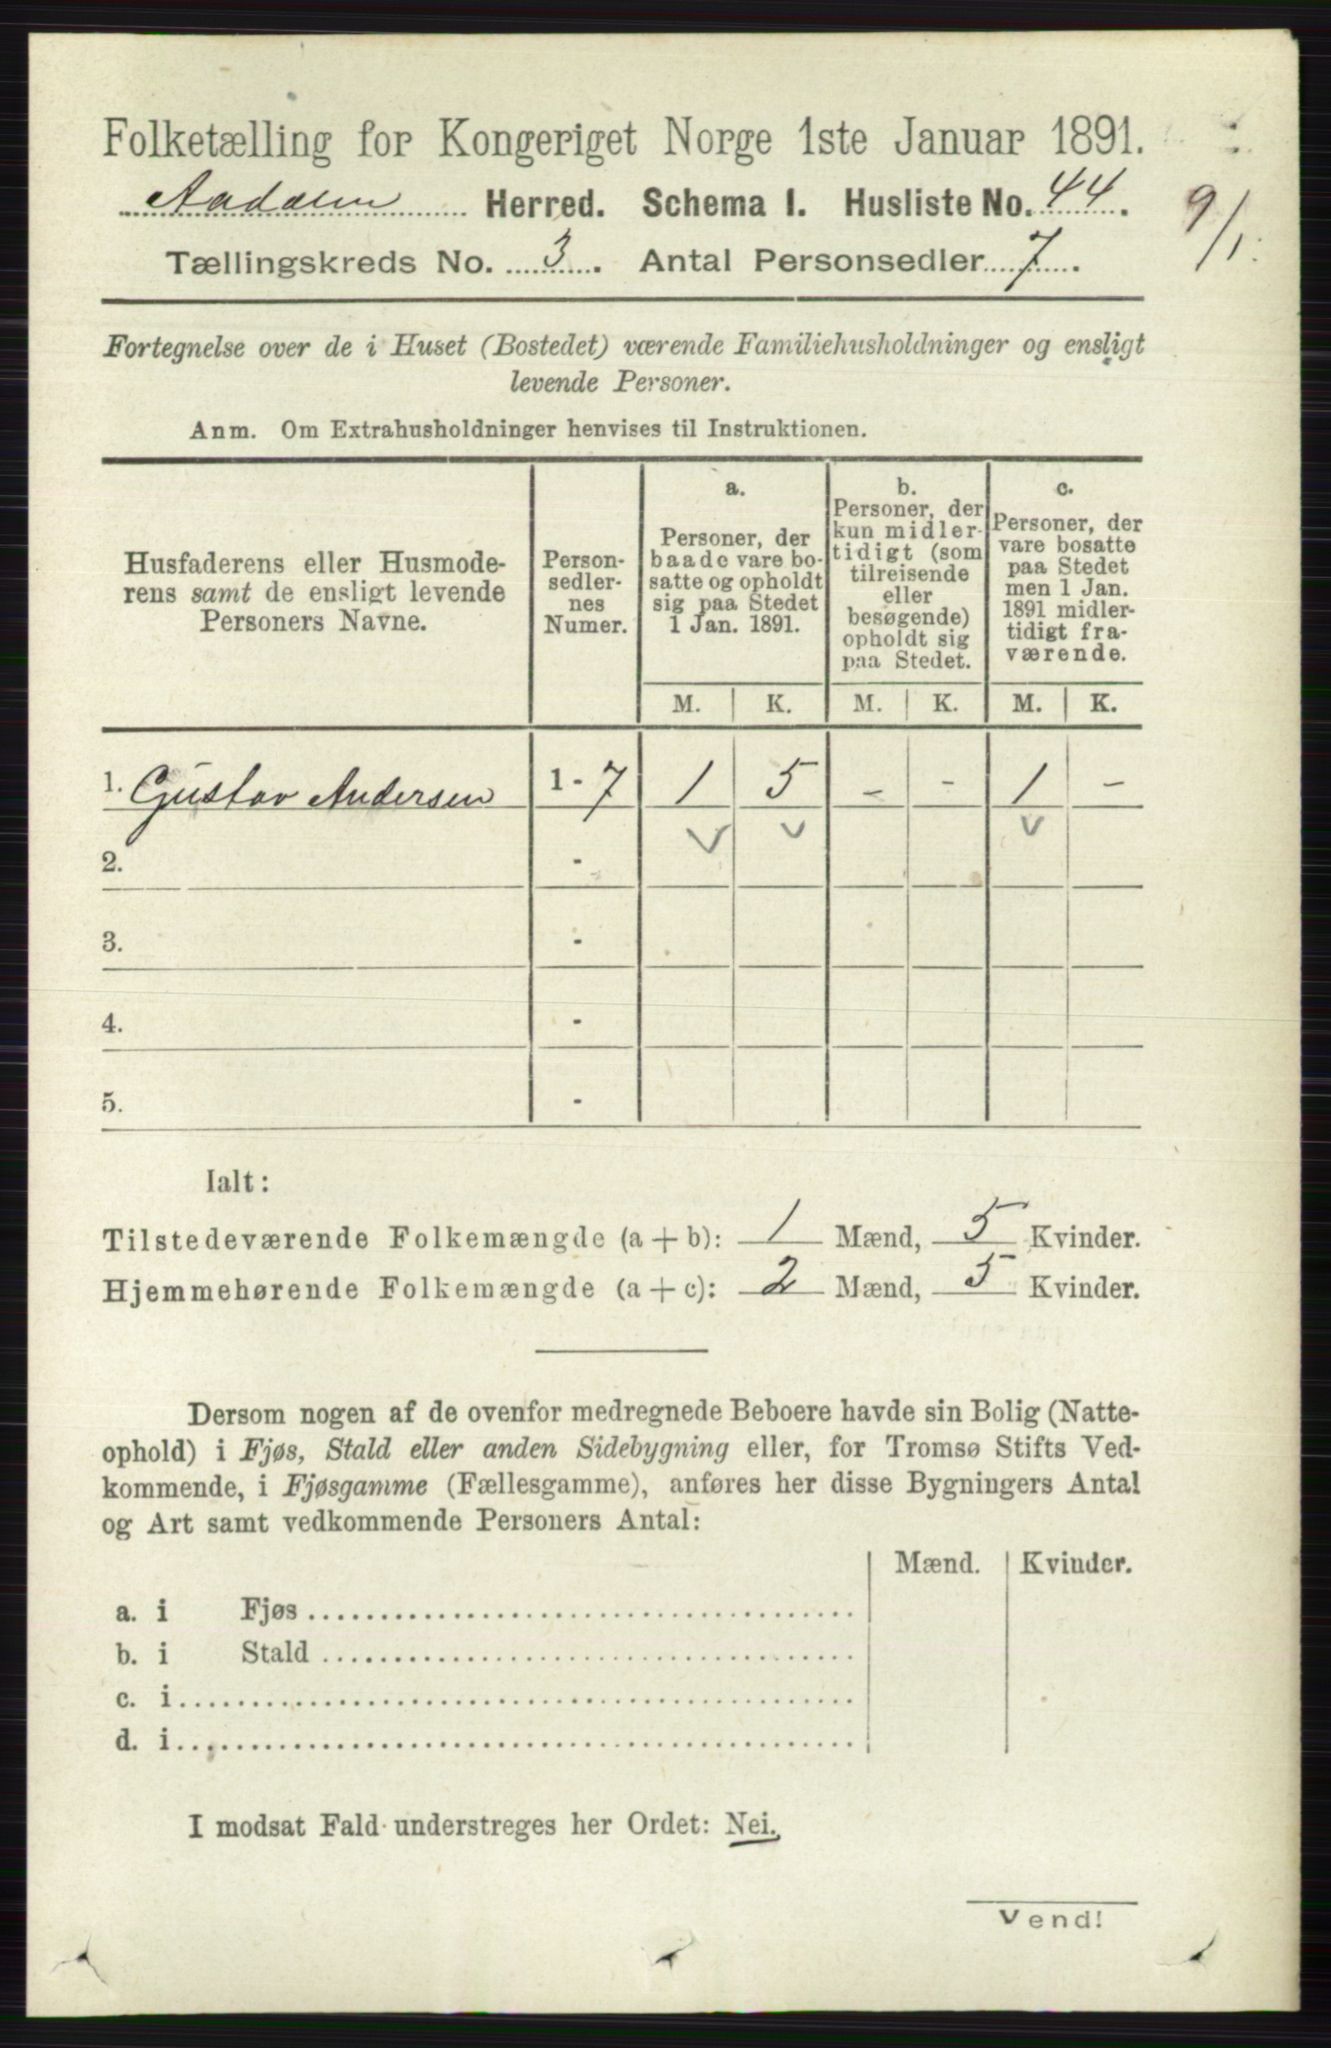 Folketælling for Kongeriget Norge 1ste Januar 1891.
Aadalen Herred. Schema I. Husliste No. 44.
9/1.
Tællingskreds No. 3. Antal Personsedler 7.
Fortegnelse over de i Huset (Bostedet) værende Familiehusholdninger og ensligt
levende Personer.
Anm. Om Extrahusholdninger henvises til Instruktionen.
Husfaderens eller Husmode-
rens samt de ensligt levende
Personers Navne.
Person-
sedler-
nes
Numer.
a.
Personer, der
baade vare bo-
satte og opholdt
sig paa Stedet
1 Jan. 1891.
b.
Personer, der
kun midler-
tidigt (som
tilreisende
eller
besøgende)
opholdt sig
paa Stedet.
c.
Personer, der
vare bosatte
paa Stedet
men 1 Jan.
1891 midler-
tidigt fra-
værende.
M. K. M. K. M. K.
1. Gustav Andersen 1 - 7 1 5 - - 1 -
2. -
3. -
4. -
5. -
Ialt:
Tilstedeværende Folkemængde (a + b): 1 Mænd, 5 Kvinder.
Hjemmehørende Folkemængde (a + c): 2 Mænd, 5 Kvinder.
Dersom nogen af de ovenfor medregnede Beboere havde sin Bolig (Natte-
ophold) i Fjøs, Stald eller anden Sidebygning eller, for Tromsø Stifts Ved-
kommende, i Fjøsgamme (Fællesgamme), anføres her disse Bygningers Antal
og Art samt vedkommende Personers Antal:
Mænd. Kvinder.
a. i Fjøs
b. i Stald
c. i
d. i
I modsat Fald understreges her Ordet: Nei.
Vend!